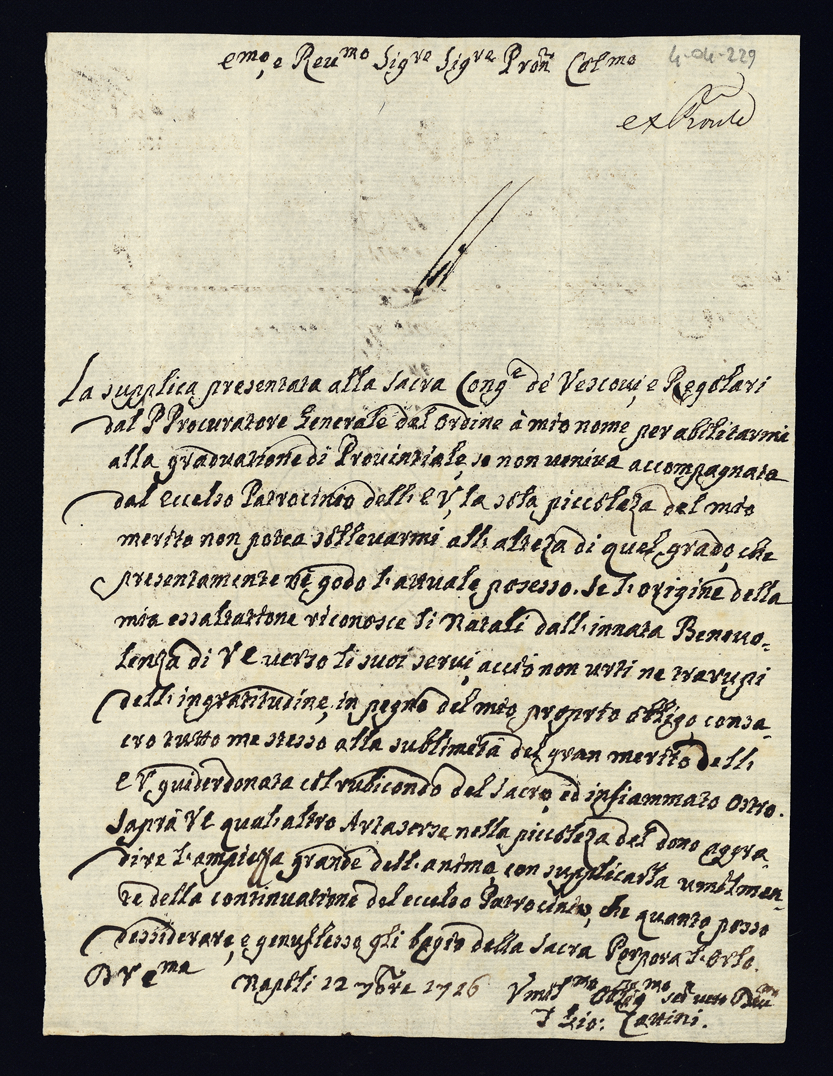 Emo, e Reumo Sigre Sigre Pron Colmo
4-04-229
La supplica presentata alla Sacra Conge de Vescoui, e Regolari
dal P Procuratore Generale del Ordine à mio nome per abilitarmi
alla graduatione di Prouintiale, se non ueniua accompagnata
dal eccelso Patrocinio dell'EV, la sola piccoleza del mio
merito non potea solleuarmi all'alteza di quel grado, che
presentamente né godo l'attuale posesso. Se l'origine della
mia essaltatione riconosce li Natali dall'innata Beneuo=
lenza di VE uerso li suoi serui, acciò non urti ne
dell'ingratitudine, in pegno del mio proprio obligo, consa
cro tutto me stesso alla sublimità del gran merito dell'
EV, guiderdonata col rubicondo del Sacro, ed infiammato Ostro.
Saprà VE qual'altro Artaserse nella piccoleza del dono aggra
dire l'ampiezza grande dell'animo, con supplicarla umilmen
te della continuatione del eccelso Patrocinio, che quanto posso
dessiderare, e genuflesso gli bagio della Sacra Porpora l'Orlo.
D V Ema Napoli 22 7bre 1726 Vmilmo Obligmo
Gio: Zattini.